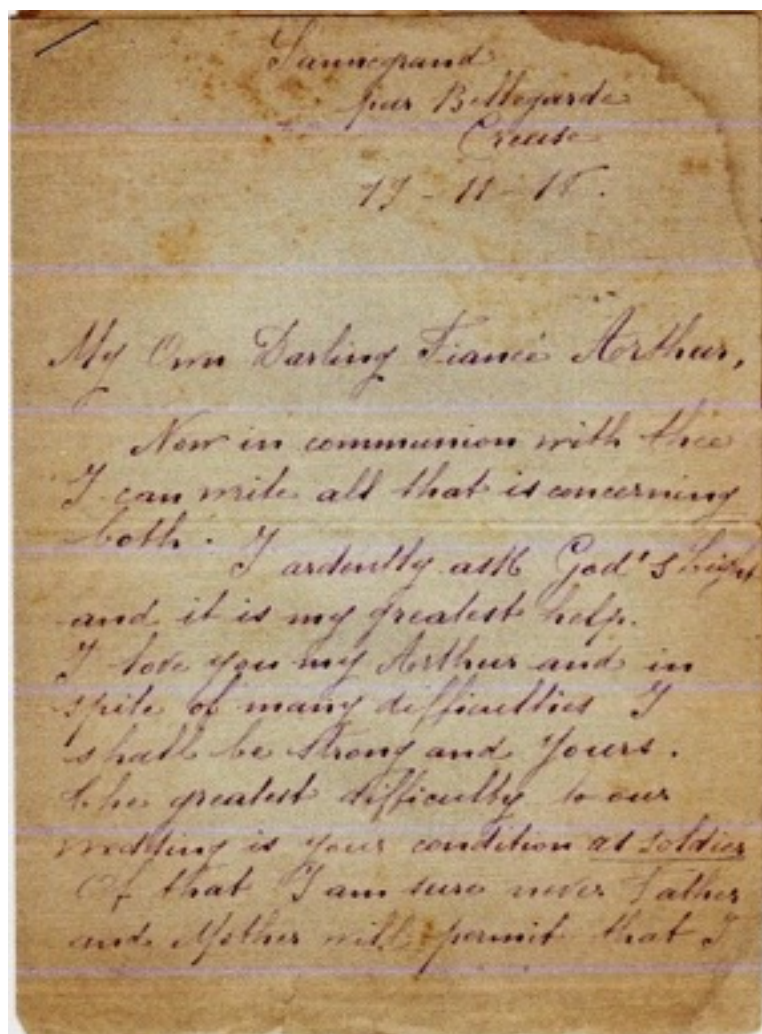 par Bellegarde
Creuse
My Own Darling Fiancé Arthur,
Now in communion with thee
I can write all that is concerning
both. I ardently ask God's light
and it is my greatest help.
I love you my Arthur and in
spite of many difficulties I
shall be strong and yours.
The greatest difficulty to our
wedding is your condition as soldier
Of that I am sure never Father
and Mother will permit that I